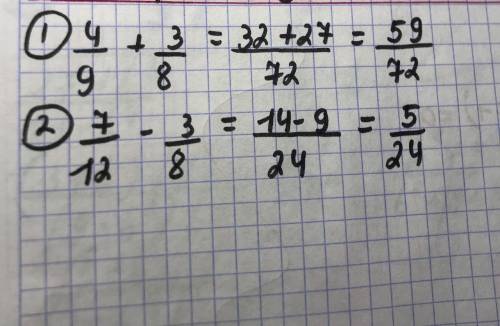 ① 4/9 + 3/8 = 32+27/72 = 59/72
② 7/12 - 3/8 = 14-9/24 = 5/24